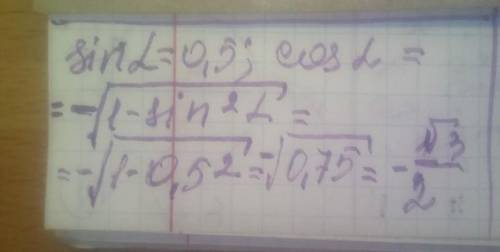 sin α = 0,5; cos α =
= -√(1 - sin² α) =
= -√(1 - 0,5²) = -√(0,75) = -√3/2